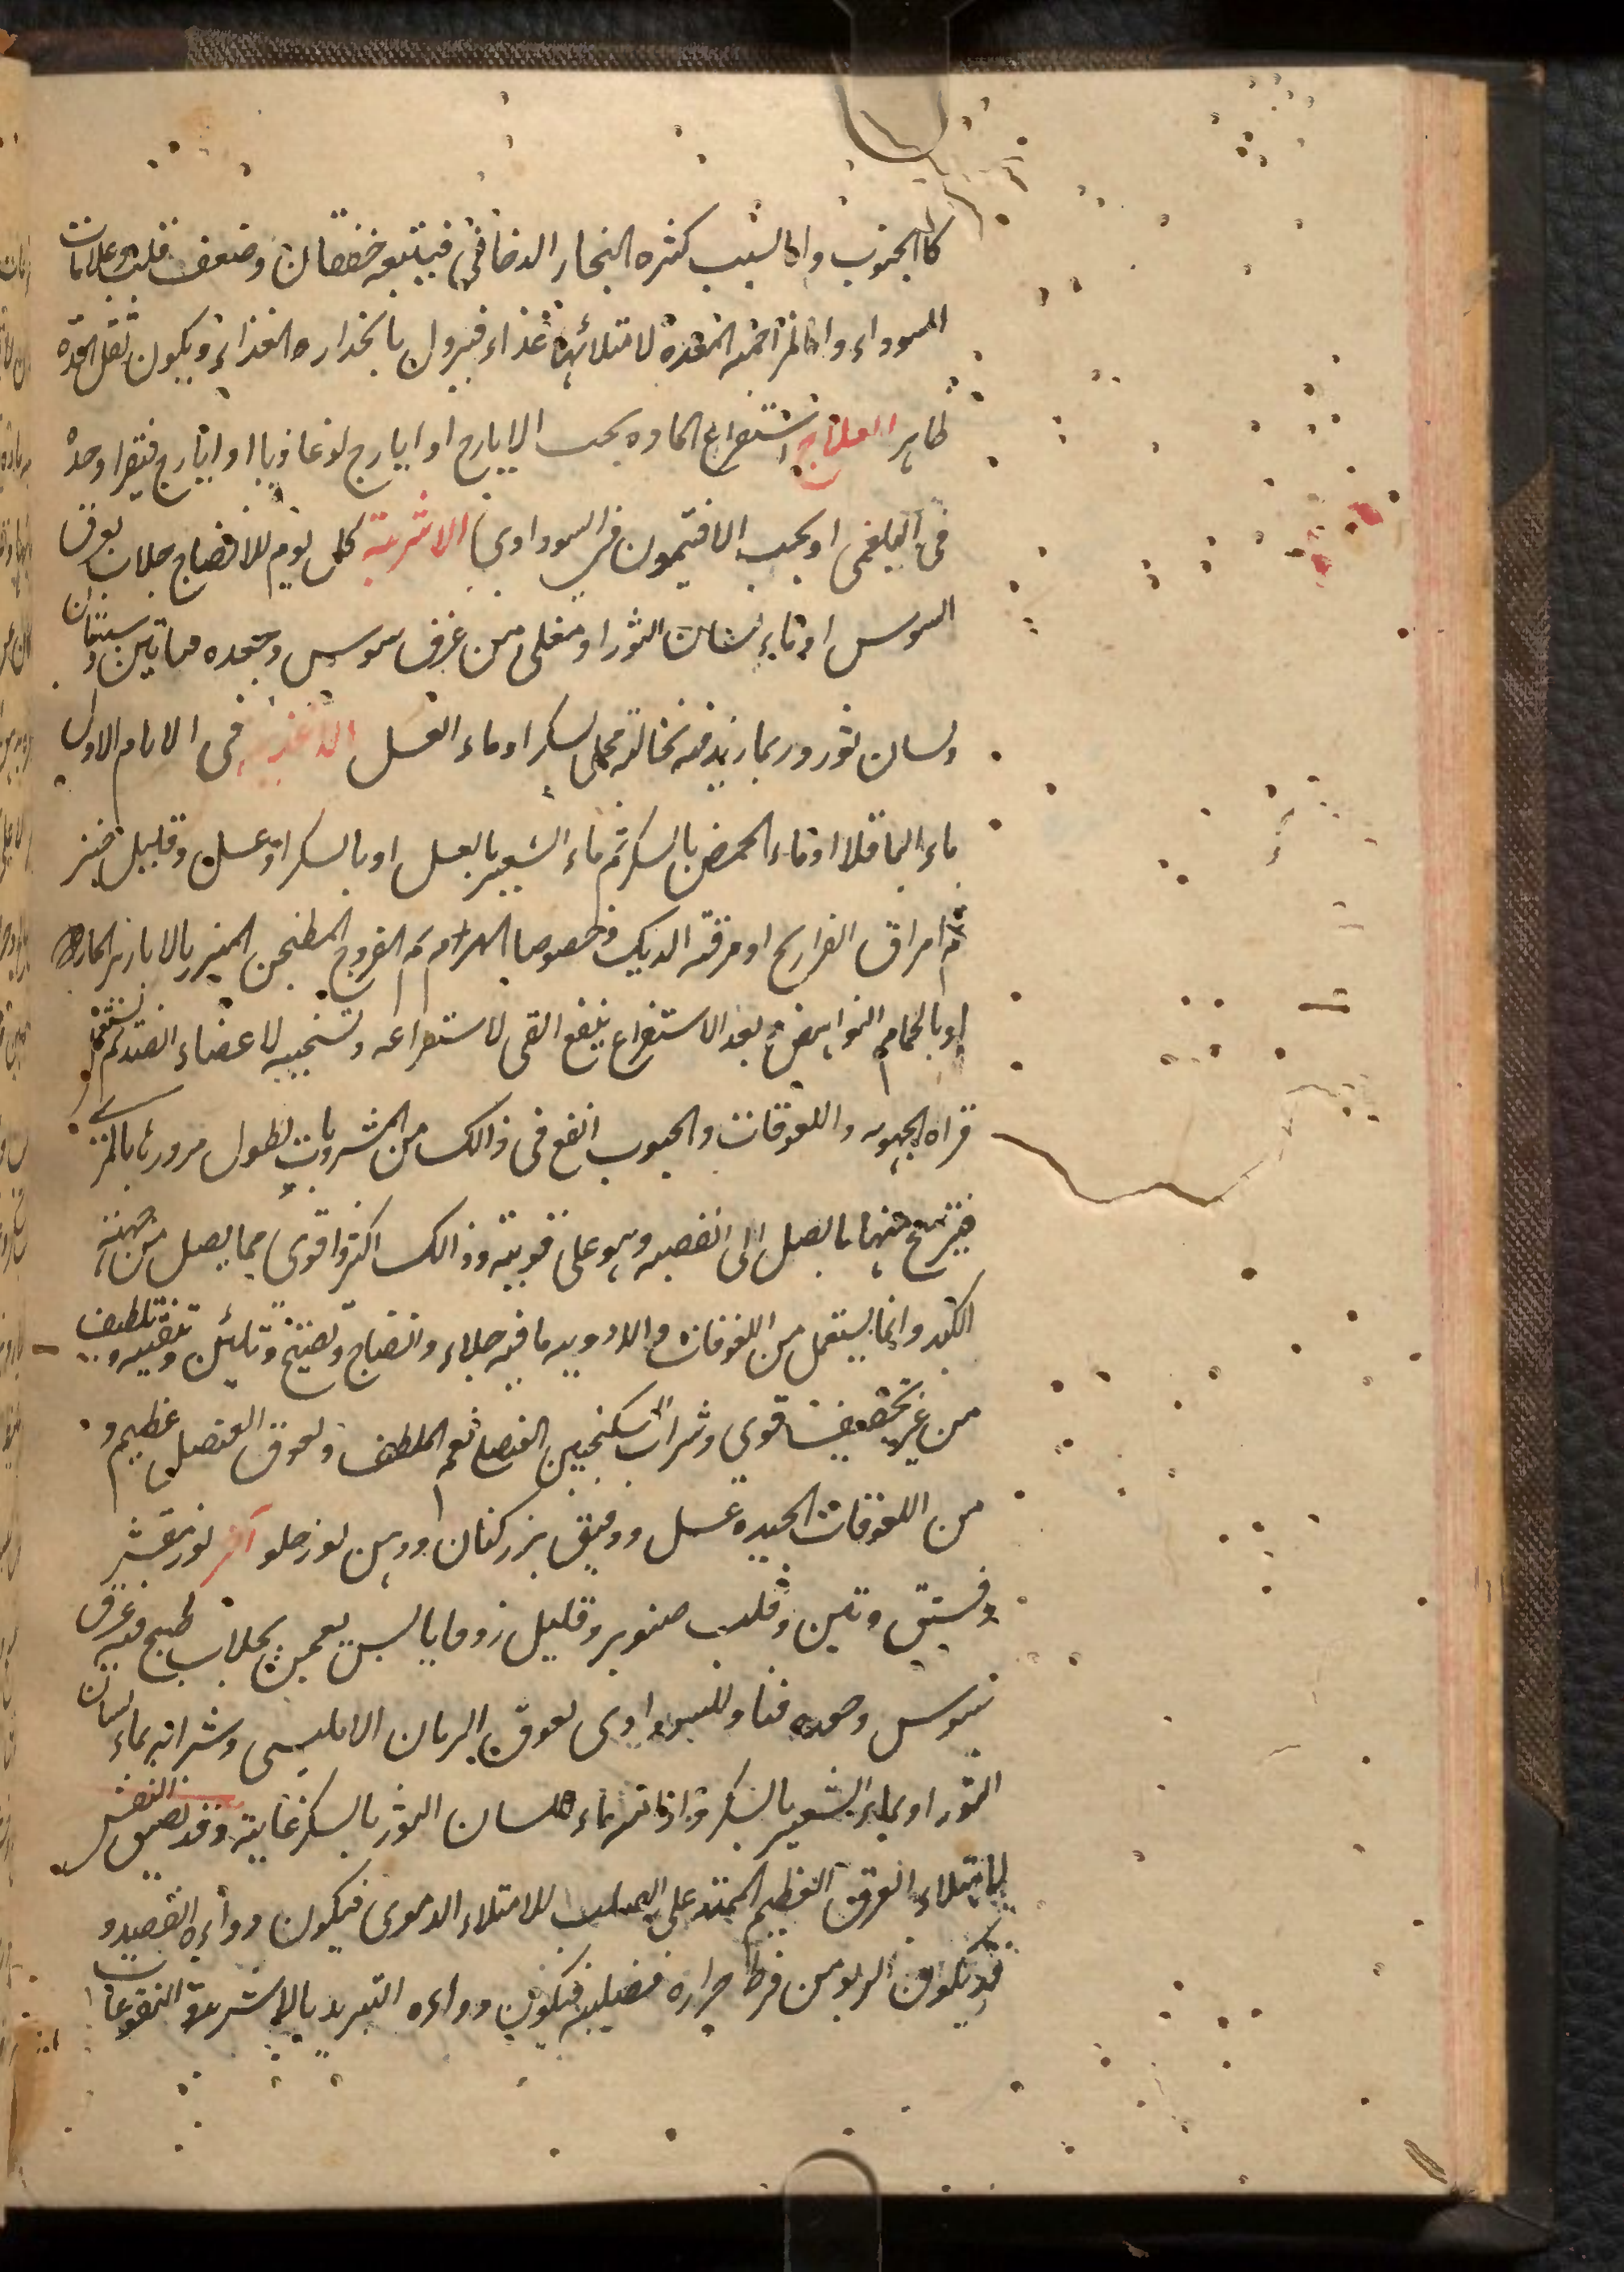 كالجنوب واما لسبب كثره البخار الدخاني فيتبعه خفقان وضعف قلب وعلامات
السوداء واما لمزاحمة المعدة لامتلائها غذاء فيزول بانحداره الغذاء ويكون ثقل المعده
ظاهر العلاج استفراغ الماده بحب الايارج او ايارج لوغاذيا او ايارج فيقرا وحده
فى البلغمى او بحب الافتيمون فى السوداوى الاشربة كل يوم للانضاج جلاب بعرق
السوس او ماء لسان الثور او مغلى من عرق سوس وجعده وتين وسبستان
ولسان ثور وربما زيد فيه نخالة محلى بسكر او ماء العسل الاغذية فى الايام الاول
ماء الباقلا او ماء الحمص بالسكر ثم ماء الشعير بالعسل او بالسكر او عسل وقليل خبز
ثم امراق الفراريج او مرقة الديك وخصوصا الهرم ثم الفروج المطنجن المبزر بالابازير الحاره
او بالحمام النواهض وبعد الاستفراغ ينفع القى لاستفراغه وتسخينه لاعضاء الصدر ثم
واللعوقات والحبوب انفع فى ذالك من المشروبات لطول مرورها بالمرى
فيترشح منها ما يصل الى القصبه وهو على قوته وذالك اكثر واقوى مما يصل من جهة
الكبد وانما يستعمل من اللعوقات والادويه ما فيه جلاء وانضاج وتفتيح وتليين وتنقيه وتلطيف
من غير تجفيف قوى وشراب السكنجبين العنصلى نعم الملطف ولعوق العنصل عظيم و
من اللعوقات الجيده عسل ودقيق بزر كتان ودهن لوز حلو آخر لوز مقشر
وفستق وتين وقلب صنوبر وقليل زوفا يابس يعجن بجلاب طبخ فيه عرق
سوس وجعده وللسوداوى لعوق الرمان الامليسى وشرابه بماء لسان
الثور او بماء الشعير بالسكر ماء لسان الثور بالسكر غاية وقد يضيق النفس
لامتلاء العرق العظيم الممتد على الصلب للامتلاء الدموى فيكون دواءه الفصد و
قد يكون الربو من فرط حراره فيكون دواءه التبريد بالاشربة النقوعات